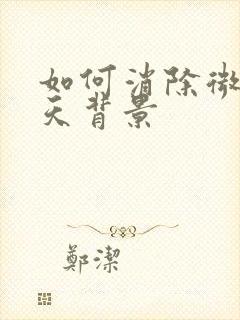 如何消除微
天背景
鄭潔